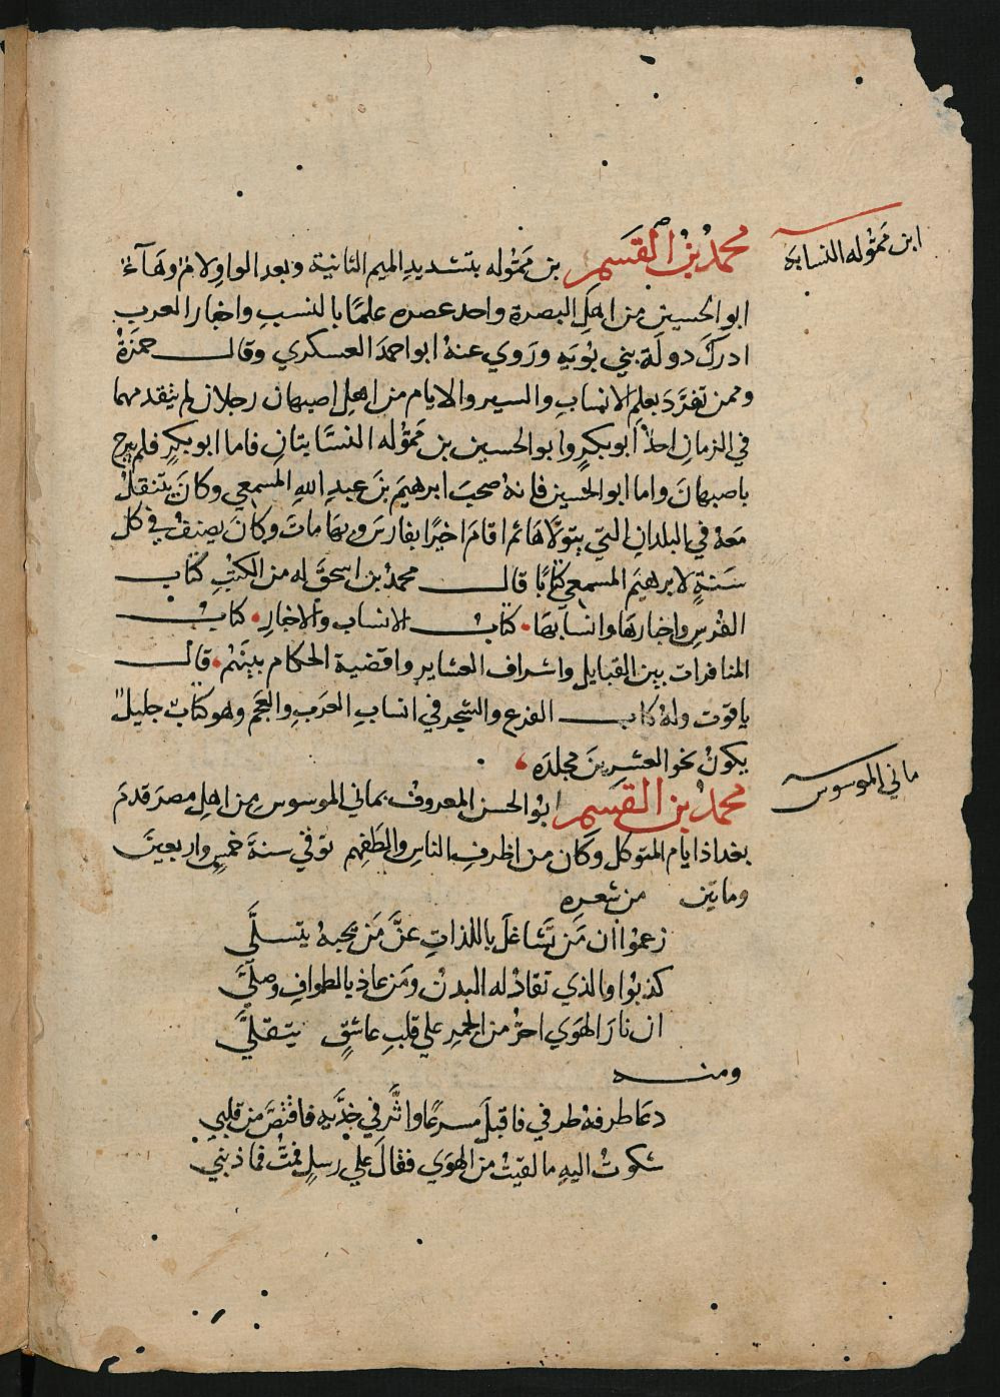 ابن ممّوله النسابه
محمدُ بنُ القسم بن مَمّوله بتشديدِ الميم الثانية وبعد الواوِ لامٌ وهَآءٌ
ابو الحسين من اهلِ البصرة واحد عصره علمًا بالنسبِ واخبار العرب
ادركَ دولَة بني بُوَيه ورَوي عنهُ ابو احمدَ العسكري وقال حمزَةُ
وممن تفرَّدَ بعلمِ الانسابِ والسير والايام من اهلِ اصبهان رجلان لم يتقدمهما
في الزمانِ احدٌ ابو بكرٍ وابو الحسين بن مَمّوله النسَّابتانِ فاما ابو بكرٍ فلم يبرح
باصبهانَ واما ابو الحسين فانهُ صحبَ ابرهيمَ بنَ عبدِ اللهِ المسمعي وكانَ يتنقلُ
معَهُ في البلدانِ التي يتولَّاهَا ثم اقامَ اخيرًا بفارسَ وبهَا ماتَ وكانَ يصنفُ في كل
سَنةٍ لابرهيمَ المسمعي كتابًا قال محمدُ بن اسحقَ له من الكتبِ كتاب
الفُرسِ واخبارهَا وانسابهَا. كتابُ الانساب والاخبارِ. كتابُ
المنافرات بين القبايل واشراف العشاير واقضية الحكام بينَهم. قال
ياقوت ولهُ كاب الفرع والشجر في انسابِ العَرَبِ والعَجَمِ وهو كتابٌ جليلٌ
يكونُ نحو العشرينَ مجلدَه
ماني الموسوس
محمدُ بن القسم ابُو الحسن المعروفُ بماني الموسوس من اهلِ مصرَ قدمَ
بغداذ ايام المتوكل وكان من اظرفِ الناسِ والطَفهِم توفي سنةَ خمسٍ واربعينَ
ومايتن من شعره
زعمُوا ان مَن تَشاغلَ باللذاتِ عَنَّ مَن يحبهُ يتسلَّى
كذبُوا والذي تقادُ له البدنُ ومَن عاذ بالطوافِ وصلَّىَ
ان نارَ الهوَي احرُّ من الجمرِ علي قلبِ عاشقٍ يتقلَّىَ
ومنه
دعَا طرفهُ طرفي فاقبلَ مسرعًا واثَّر في خدَّيهِ فاقتصَّ من قلبي
شكوتُ اليهِ ما لقيتُ من الهوَي فقالَ علي رسلٍ فمتُ فما ذنبي